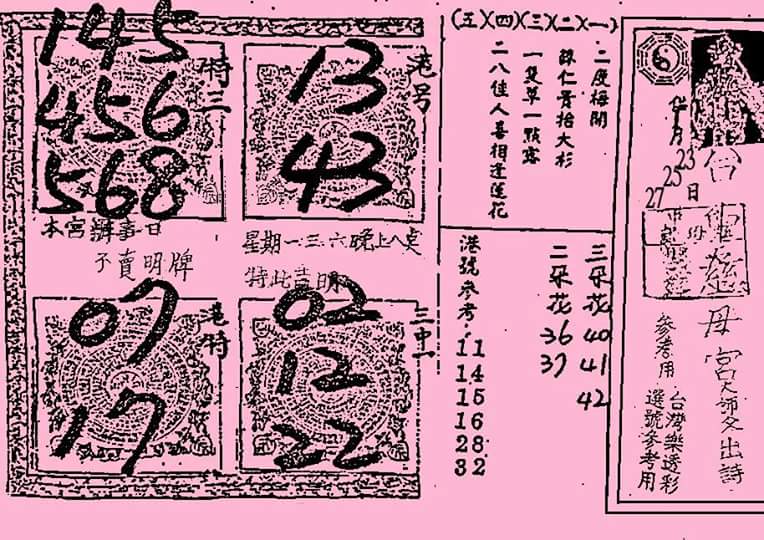 月
23
25
27
日
台
母宮
出詩
參考用
台灣樂透彩
選號參考用
(五)(四)(三)(二)(一)
二度梅開
一隻草一點露
二八佳人喜相逢蓮花
三朵花
40
41
42
二朵花
36
37
港號參考
11
14
15
16
28
32
港号
13
43
特三
145
456
568
本宮辦事日
星期一三六晚上八点
不賣明牌
特此声明
三中一
02
12
22
港特
07
17